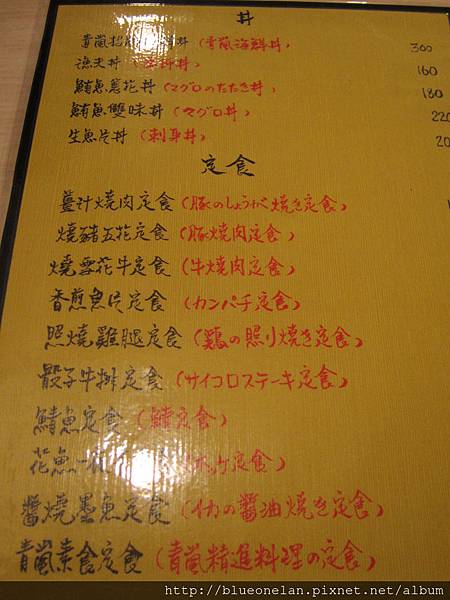 丼
青嵐招 丼 (青嵐海鮮丼) 300
漁夫丼 丼) 160
鮪魚蔥花丼 (マグロのたたき丼) 180
鮪魚雙味丼 (マグロ丼) 220
生魚片丼 (刺身丼) 20
定食
薑汁燒肉定食 (豚のしょうが焼き定食)
燒豬五花定食 (豚焼肉定食)
燒雪花牛定食 (牛焼肉定食)
香煎魚片定食 (カンパチ定食)
照燒雞腿定食 (鶏の照り焼き定食)
骰子牛排定食 (サイコロステーキ定食)
鯖魚定食 (鯖定食)
花魚一 定食)
醬燒墨魚定食 (イカの醤油焼き定食)
青嵐素食定食 (青嵐精進料理の定食)
http://blueonelan.pixnet.net/album